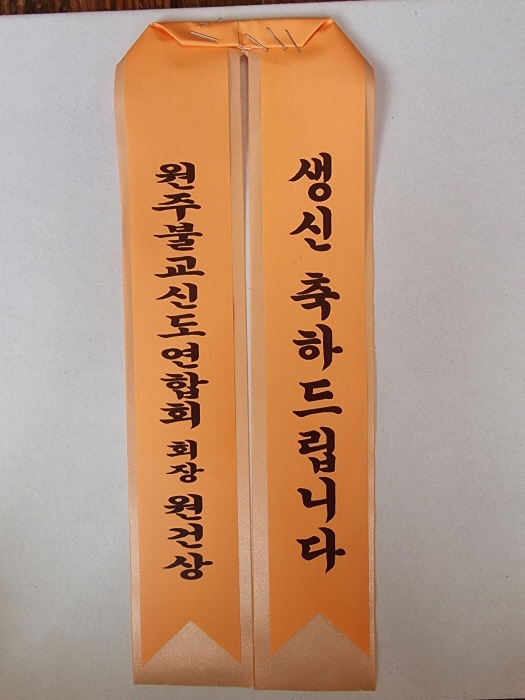 생신 축하드립니다
원주불교신도연합회 회장 원건상